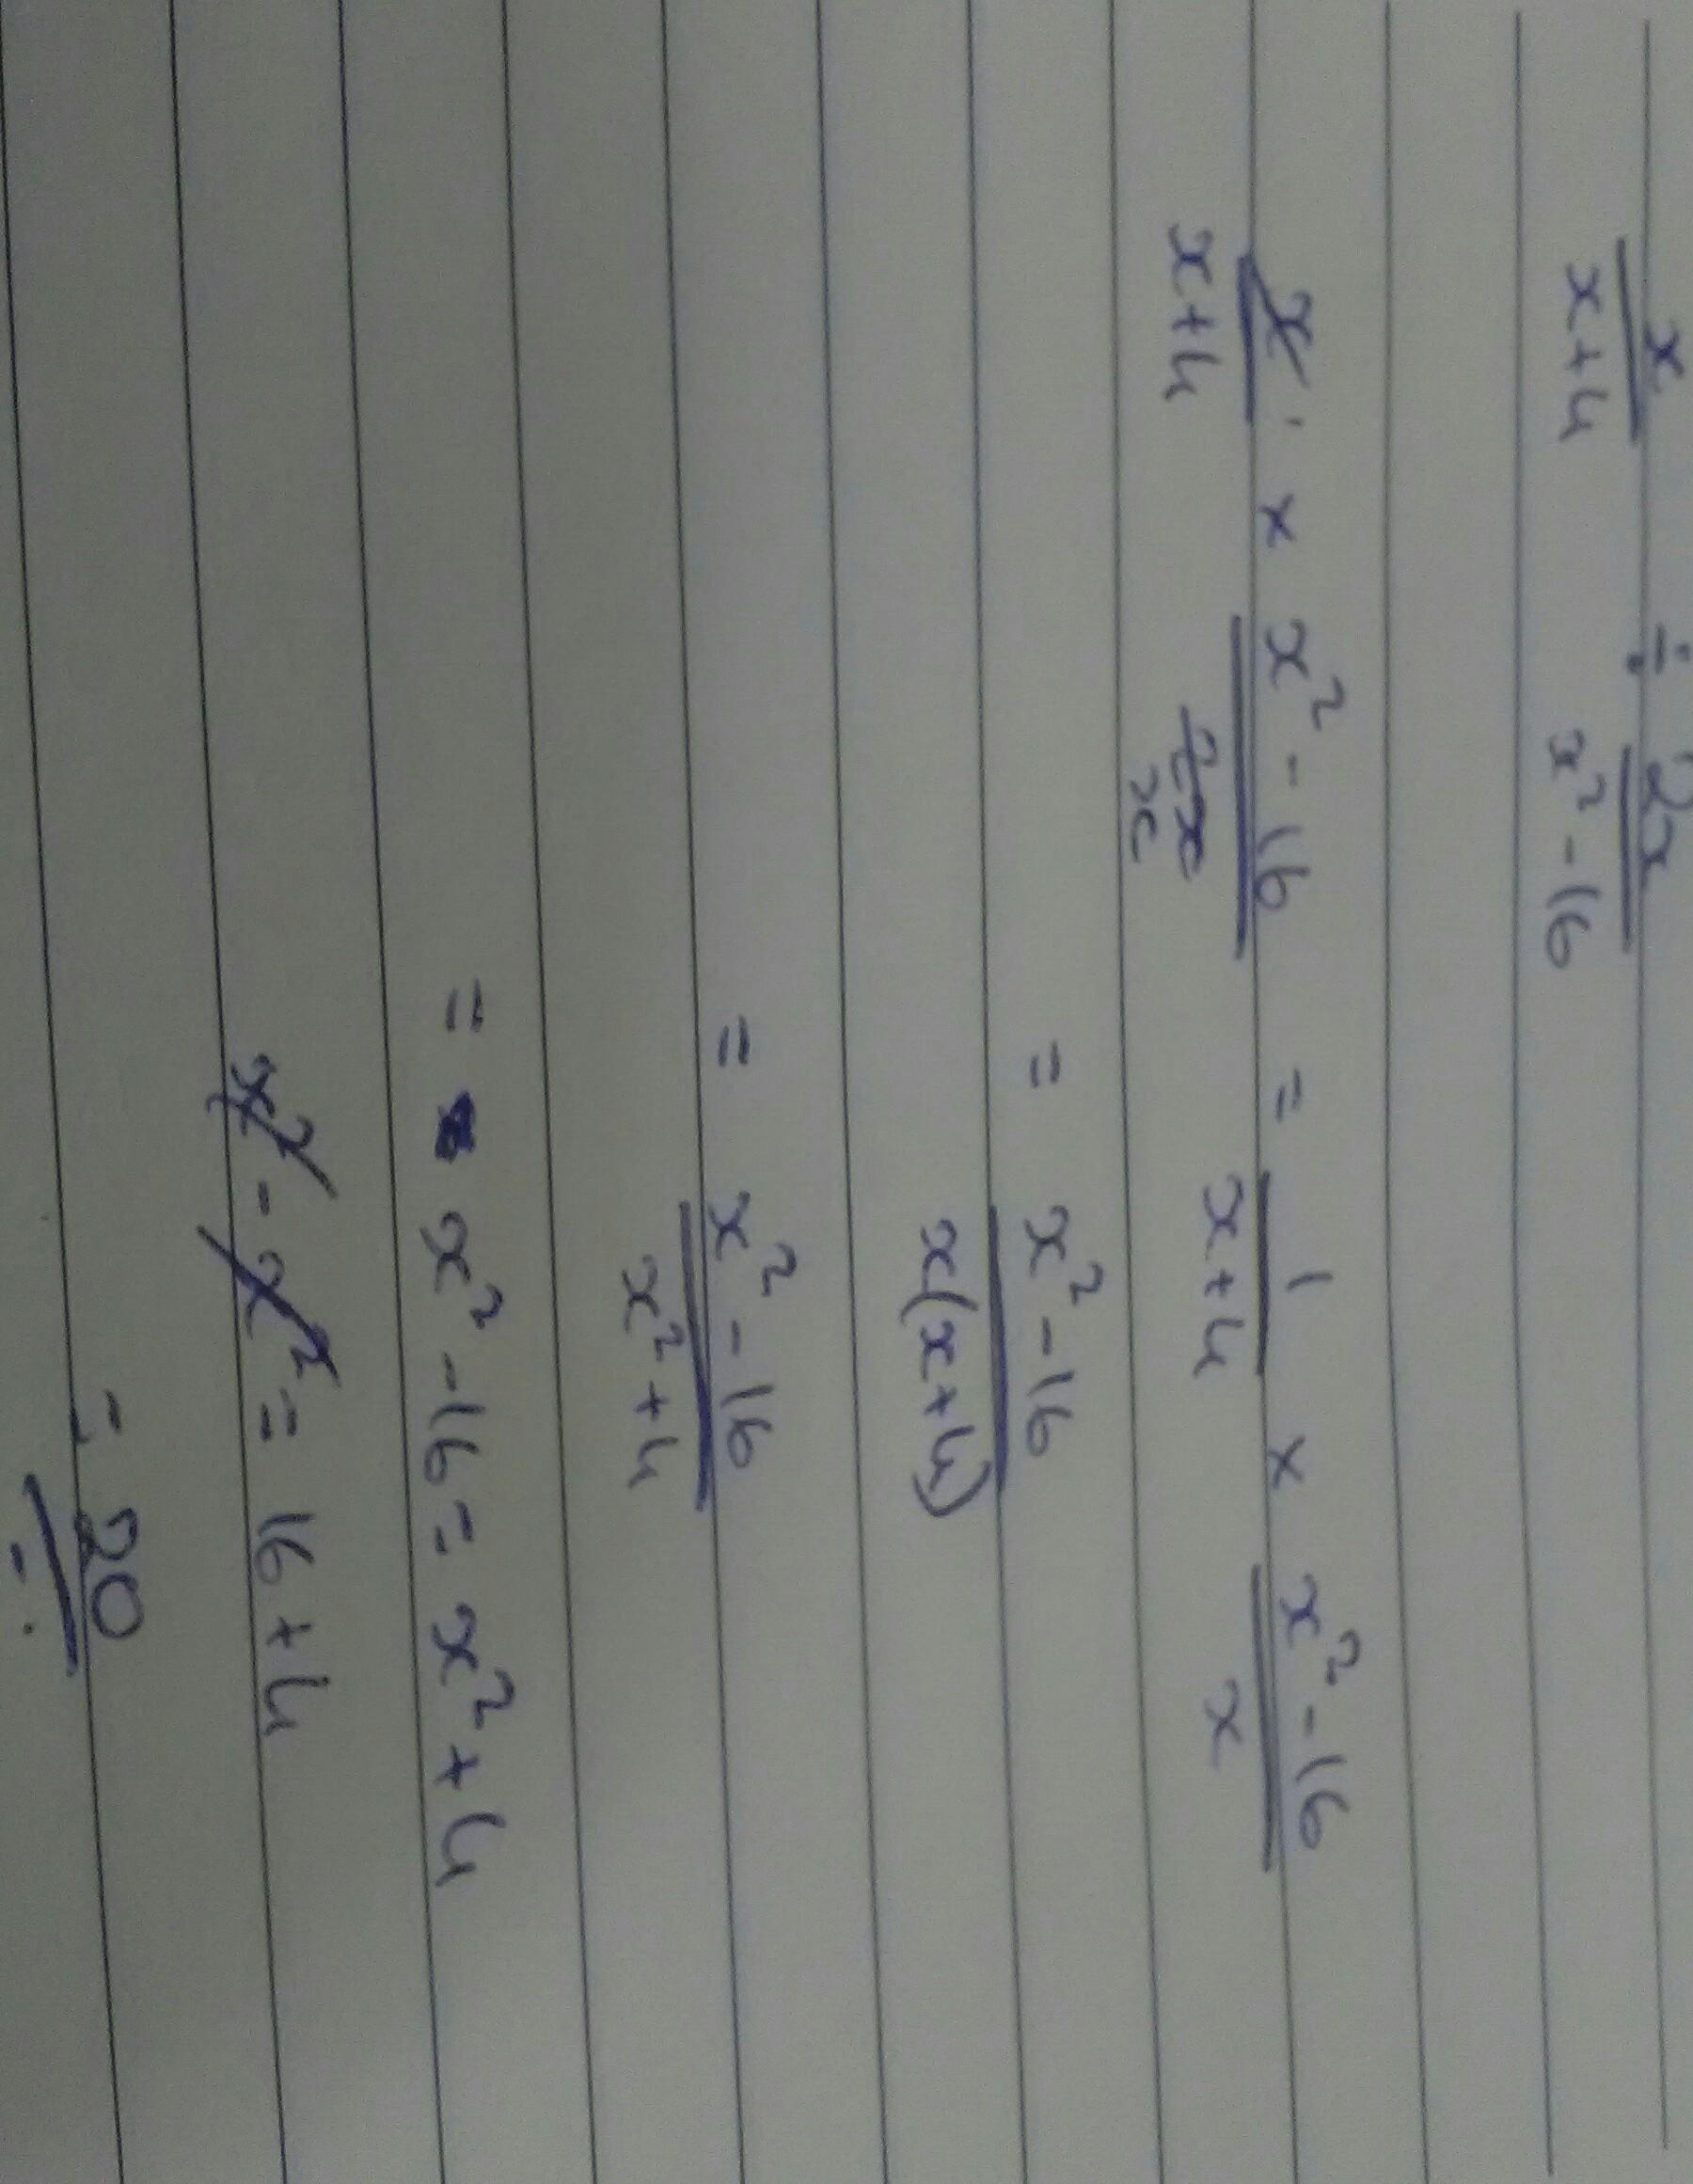 x/(x+4) ÷ 2x/(x² - 16)
x/(x+4) × (x² - 16)/2x x = 1/(x+4) × (x² - 16)/x
= (x² - 16)/x(x+4)
= (x² - 16)/(x² + 4)
= x² - 16 = x² + 4
x² - x² = 16 + 4
= 20